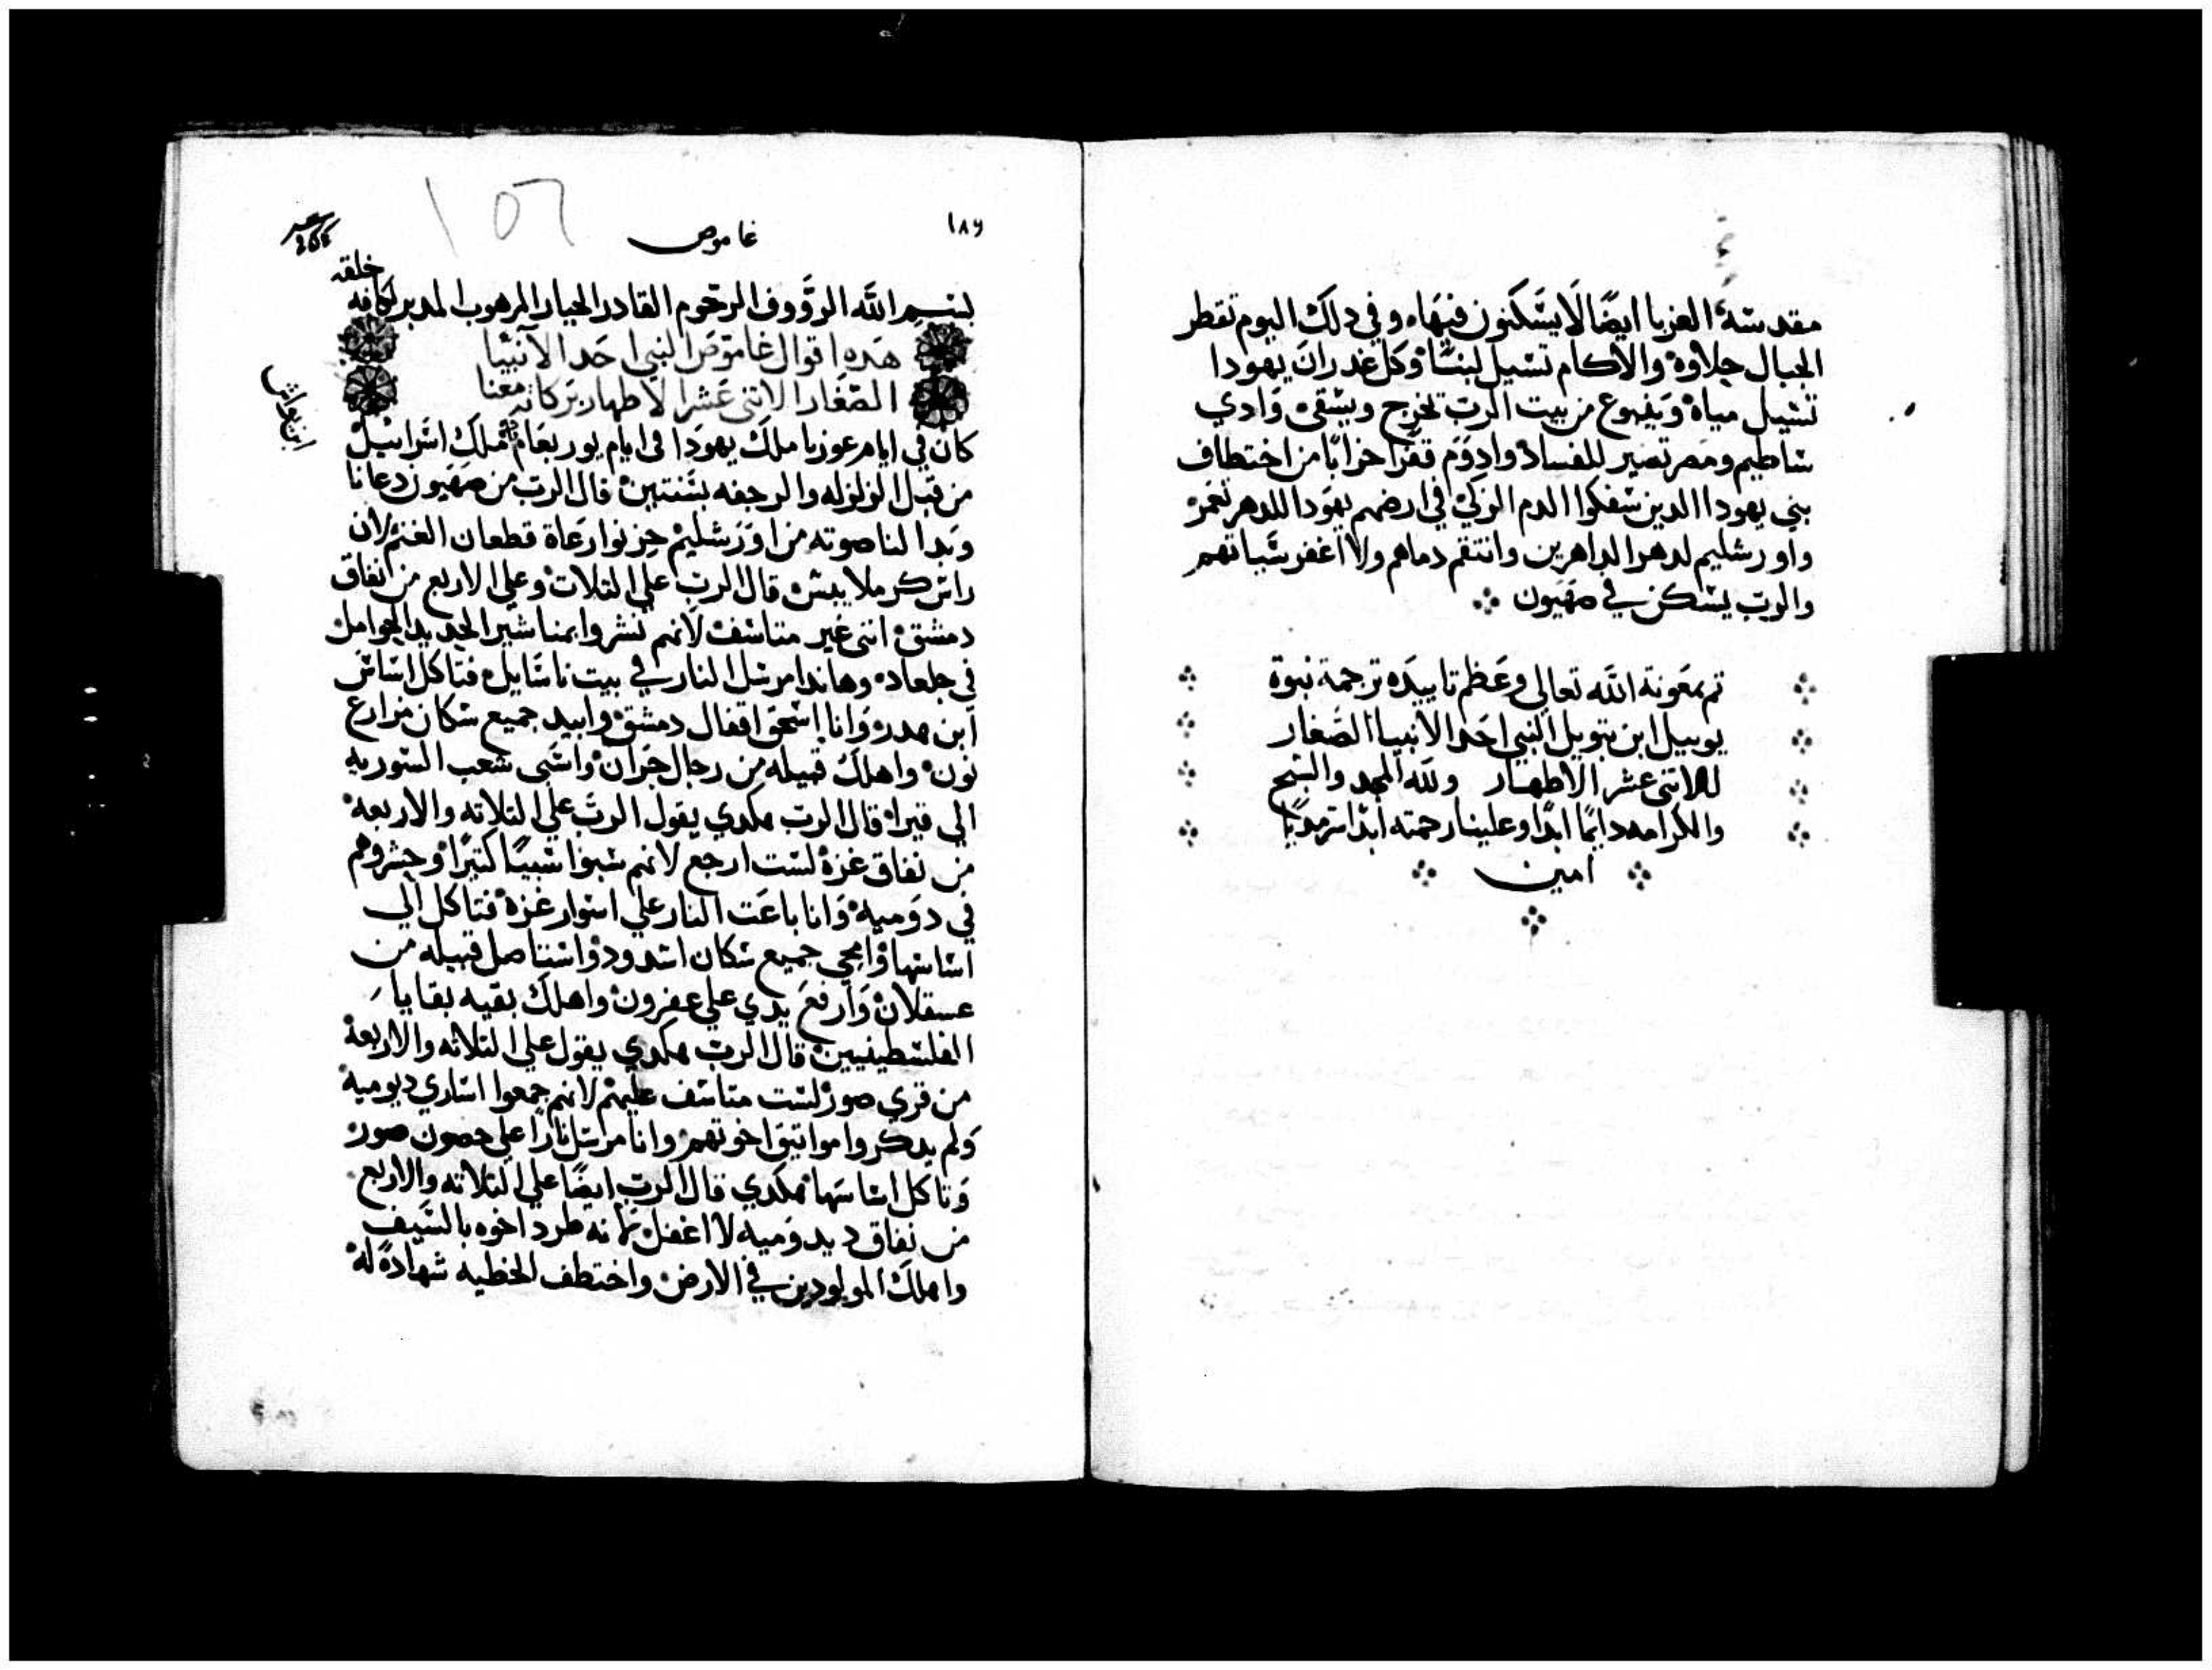 مقدسة الغربا ايضًا لَا يسَّكنون فيهَا، وفي دلك اليوم تقطر
الجبال حلاوة والاكام تسيل لبنًا وكل غدران يهودا
تسيل مياة وَينبوع من بيت الرب يخرج ويسقي وَادي
ساطيم ومصر تصير للفساد وادوَم قفرًا خرابًا من اختطاف
بني يهودا الدين سفكوا الدم الزكي في ارضهم يهوَدا للدهر تعمر
واورشليم لدهر الداهرين وانتقم دماهم ولا اغفر سياتهم
والرب يسكن في صهيون
تم بمعَونة الله تعالي وعَظم تاييده ترجمة نبوة
يوييل ابن بتوييل النبي احَد الانبيا الصَغار
للاتني عشر الاطهار ولله المجد والسبح
والكرامه دايمًا ابدًا وعلينا رحمته ابدًا سرمديًا
امين
١٨٦
غاموص
١٥٦
خلقه
بسم الله الروَوف الرحَوم القادر الجبار المرهوب المدبر لكافه
هَده اقوال غاموَص النبي احَد الآنبيَا
الصَغار الاتني عَشر الاطهار بَركاته معنا
ابن يواش
كان في ايام عوزيا ملك يهوَدا في ايام يوربعَام ملك اسَراييل
من قبل الزلزله والرجفه بسَنتين قال الرب من صَهيون دعانا
وَبدا لنا صوته من اوَرَشليم حزنوا رعَاة قطعان الغنم لان
راس كرملا يبس قال الرب علي التلات وعلي الاربع من نفاق
دمشق انني غير متاسف لانهم نشروا بمناشير الحديد الحوامل
في جلعاد وهاندا مرسَل النار في بيت ناسَاييل فتاكل اسَاس
ابن هدر وَانا اسَحق اقفال دمشق وابيد جميع سكان مزارع
نون واهلك قبيله من رجال حَران واسَبي شعب السَوريه
الي قيراة قال الرب هكدي يقول الرب علي التلاته والاربعه
من نفاق غزة لست ارجع لانهم سَبوا سَبيًا كتيرًا وحشروهم
في دوَميه وَانا باعَت النار علي اسَوار غزة فتاكل الي
اسَاسَها وَامحي جميع سكان اشدود وَاستَاصل قبيله من
عسقلان وَارفعَ يدي علي عفرون واهلك بقيه بقايا
الفلسَطينيين قال الرب هكدي يقول علي التلاته والاربعة
من قري صور لست متاسف عليهم لانهم جمعوا اسَاري ديوميه
وَلم يدكروا مواتيق اخوتهم وانا مرسَل نارًا علي حصون صور
وَتاكل اسَاسَها هكدي قال الرب ايضًا علي التلاته والاربع
من نفاق ديدوَميه لا اغفل لانه طرد اخوه بالسَيف
واهلك المولودين في الارض واختطف الخطيه شهادة له